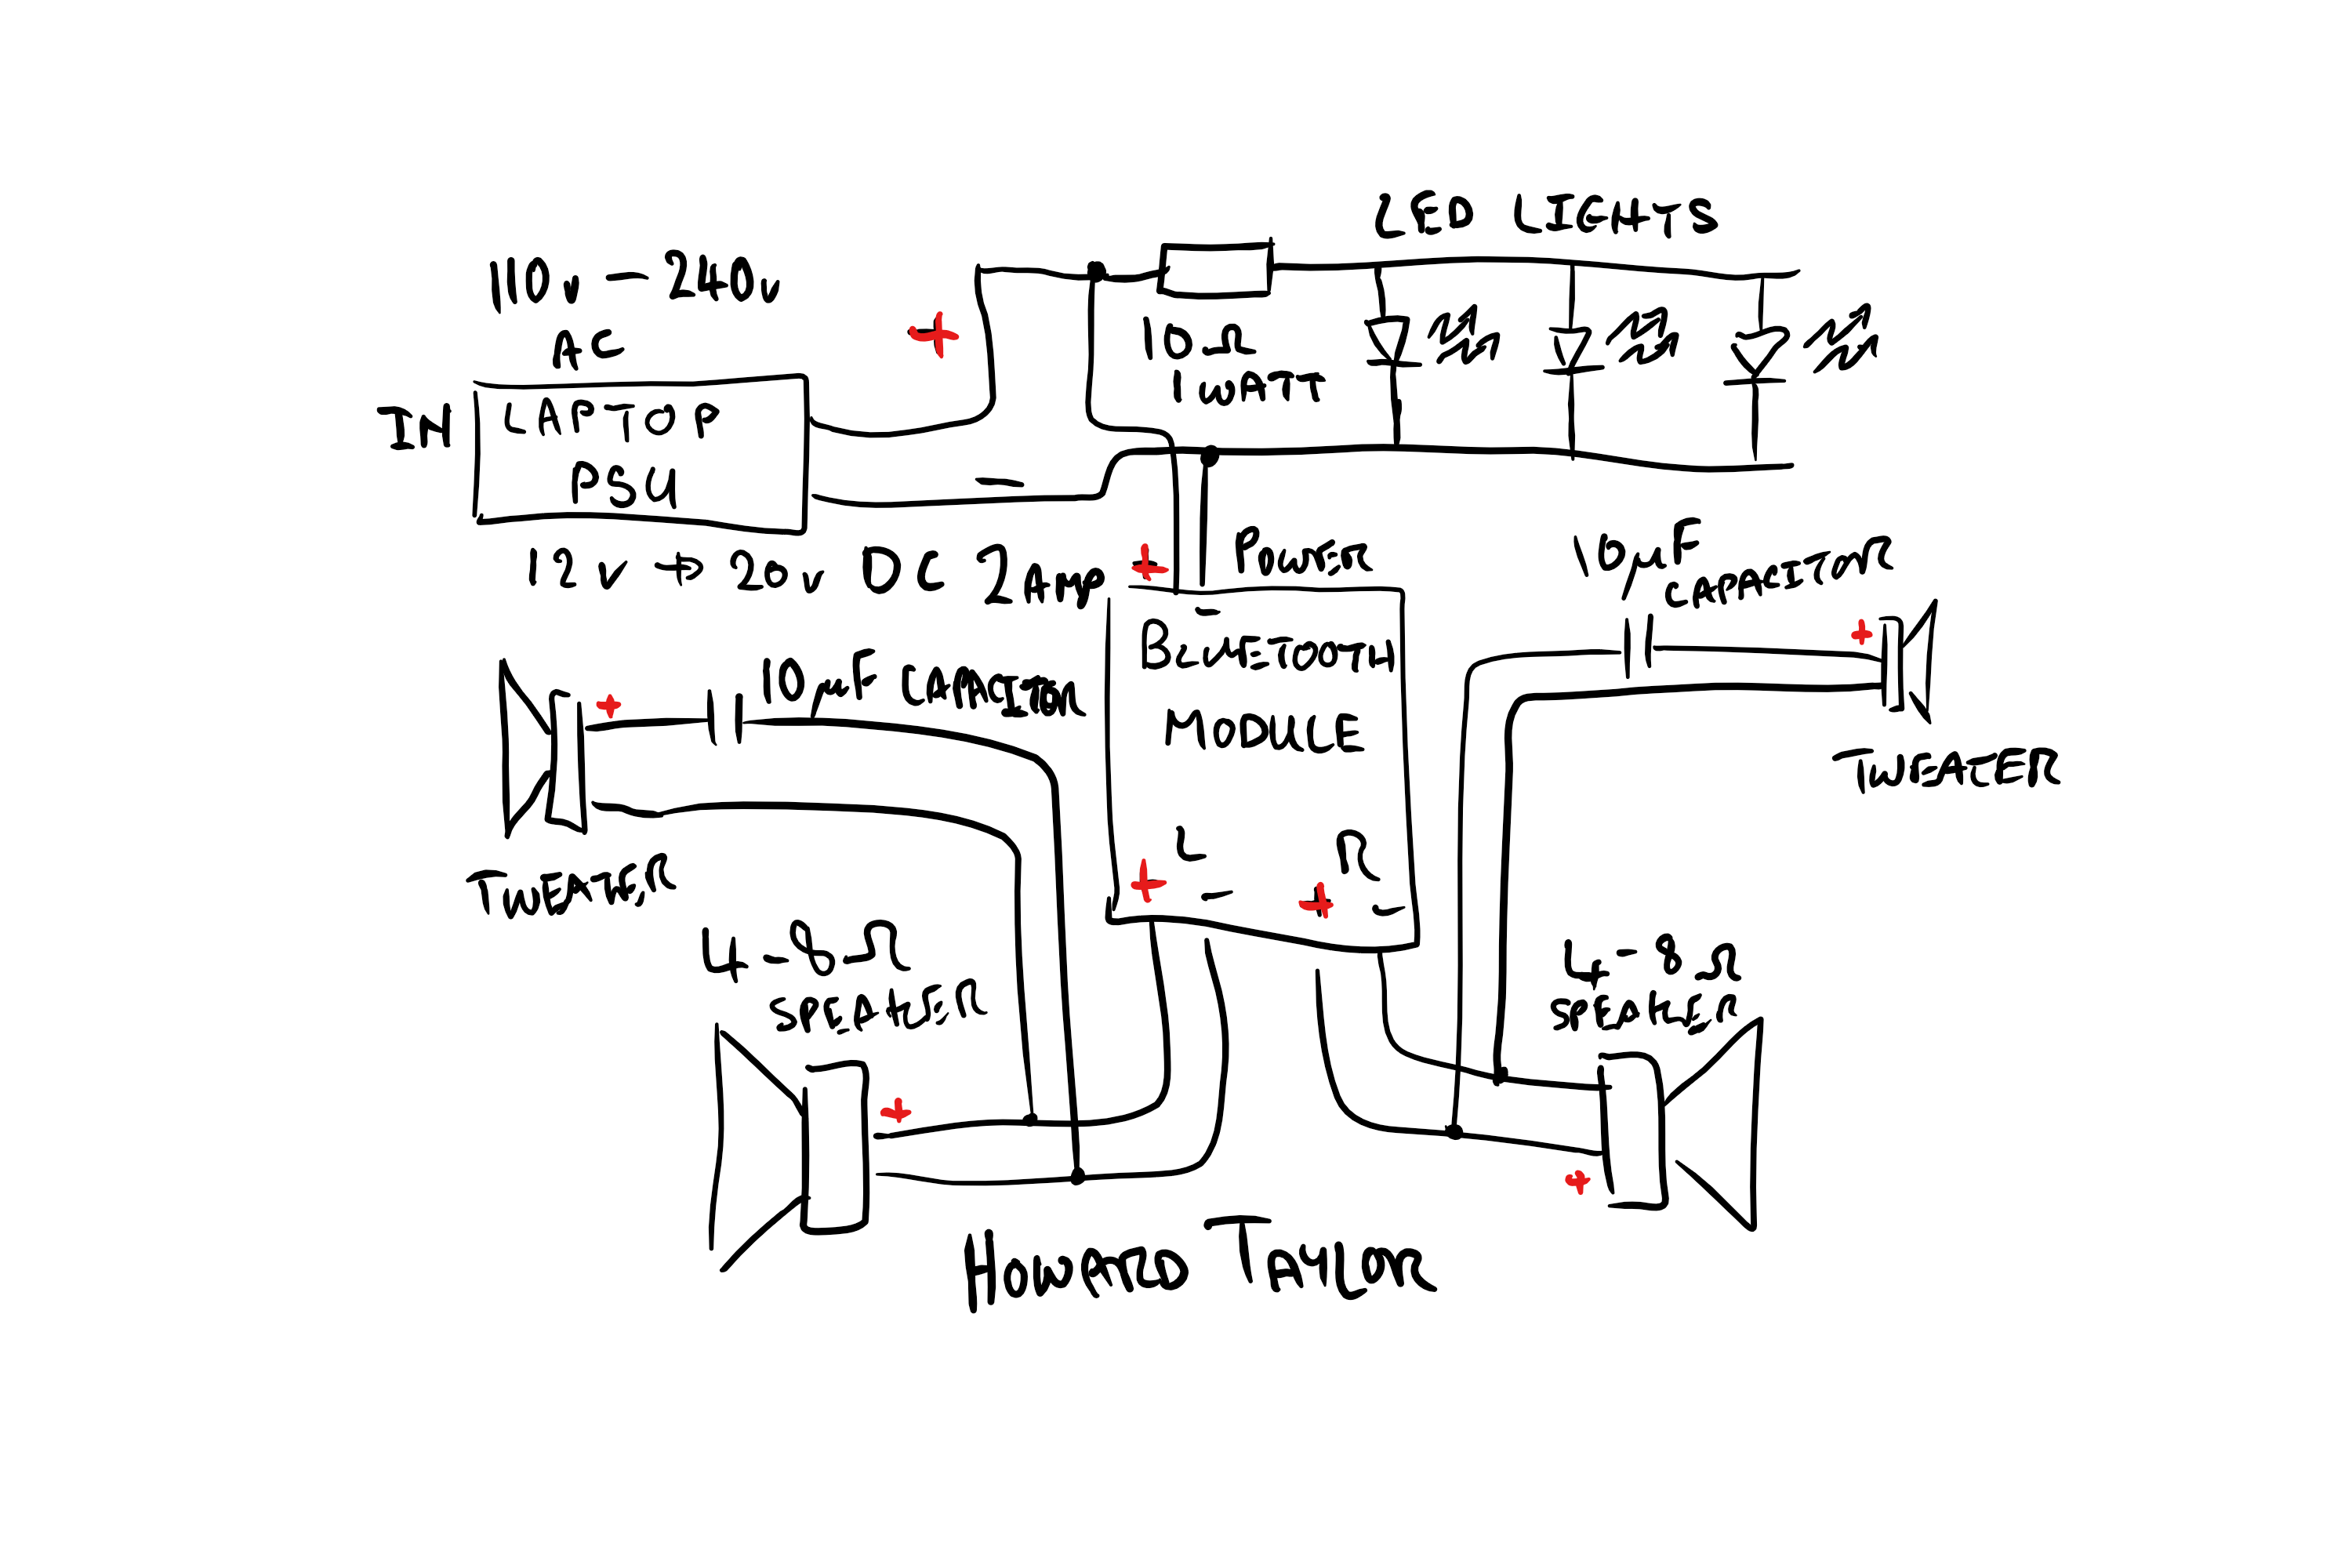 LED LIGHTS
110v - 240v
AC
+
10Ω
1 WATT
IN
LAPTOP
PSU
-
12v → 20v DC 2 Amp
+
POWER
-
10µF
CAPACITOR
BLUETOOTH
MODULE
+
TWEATER
10µF CAPACITOR
+
TWEATER
L
R
+
-
+
-
4-8Ω
SPEAKER
+
4-8Ω
SPEAKER
+
HOWARD TAYLOR